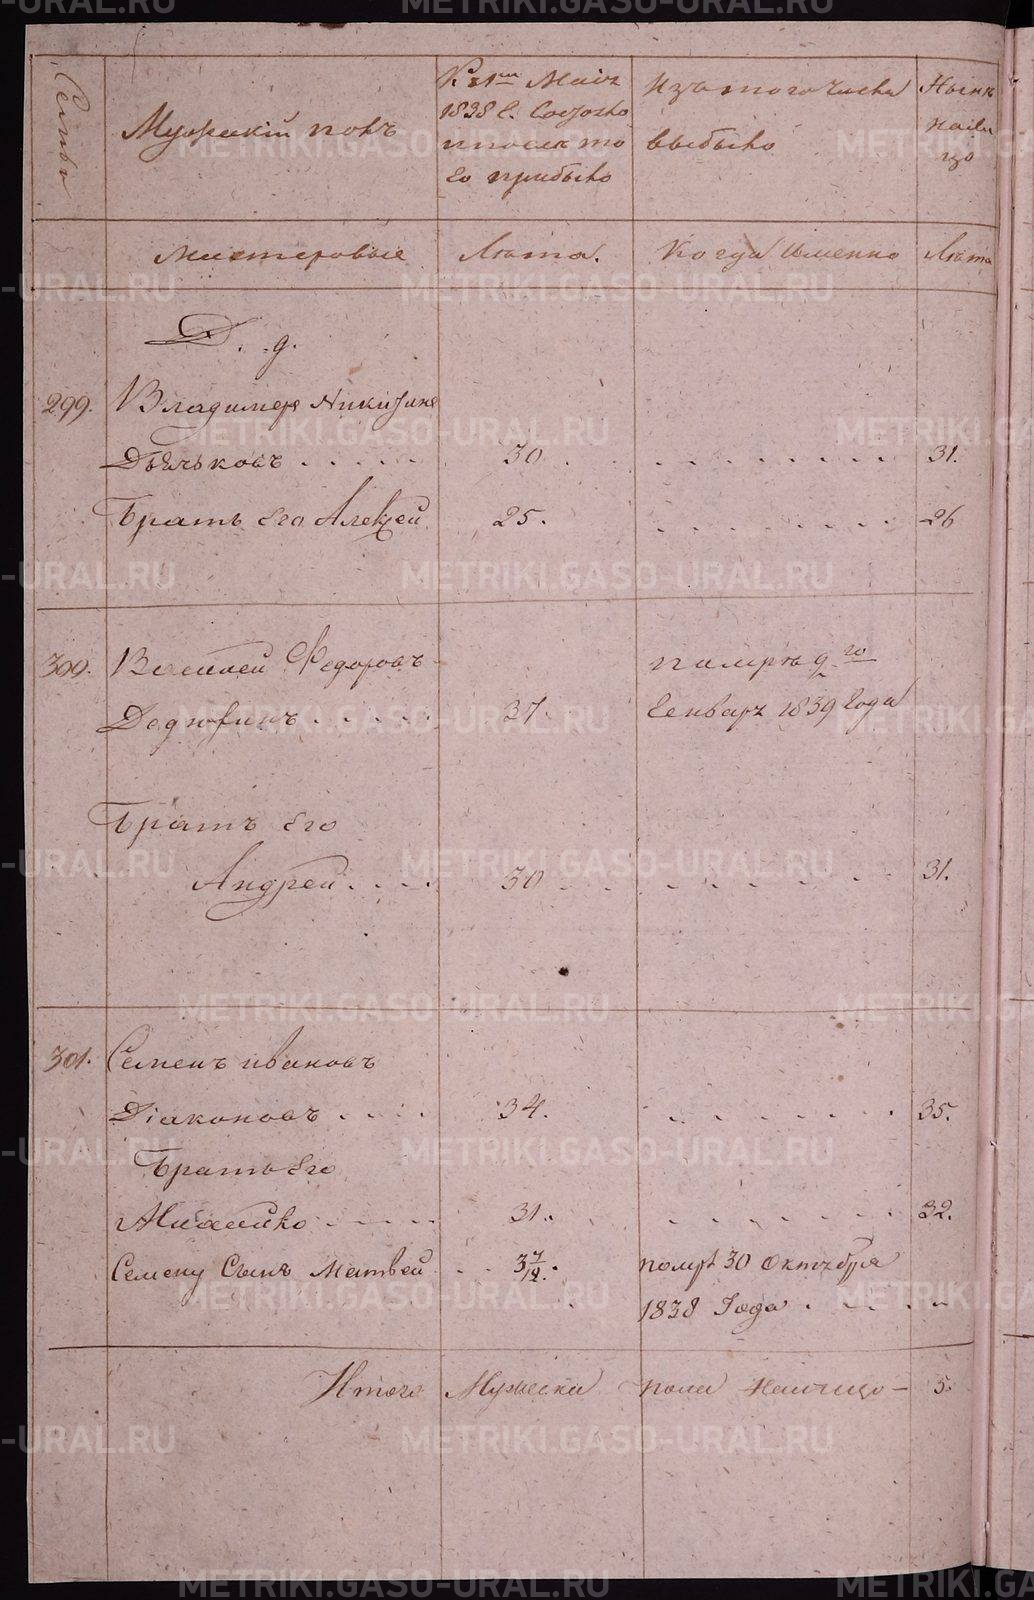 Семьи
Мужескiй полъ
К 1му Маiя
1838 г. Состояло
и после то
го прибыло
Изъ того числа
выбыло
Ныне
нали
цо
Мастеровые
Лета.
Когда именно
Лета
Д. д.
299. Владимеръ Никитинъ
Дьячковъ 30 31.
Братъ Его Алексей 25. 26
300. Василей Федоровъ
Дедюхинъ 37
памре 9го
Генваря 1839 Года
Братъ Его
Андрей 30 31.
301. Семенъ ивановъ
Дiаконовъ 34. 35.
Братъ Его
Михайло 31. 32.
Семену Сынъ Матвей 3 7/12. помре 30 Октября
1838 Года
Итого Мужеска пола Налицо 5.
METRIKI.GASO-URAL.RU